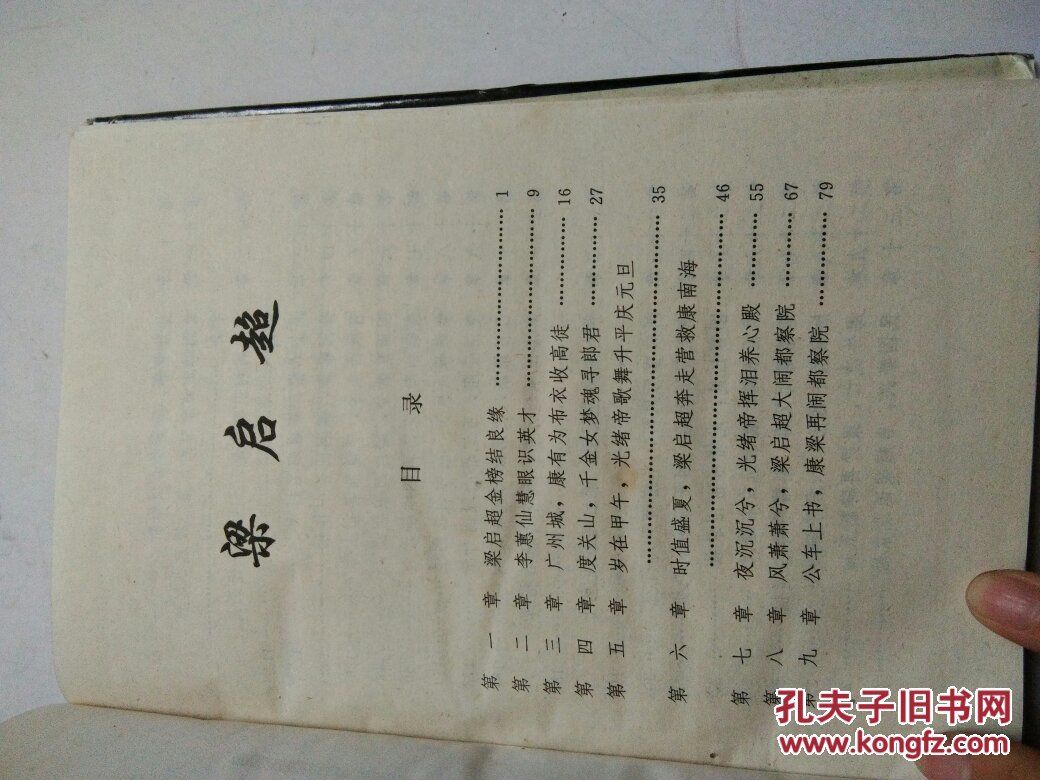 梁启超
目录
第一章 梁启超金榜结良缘…………1
第二章 李蕙仙慧眼识英才…………9
第三章 广州城，康有为布衣收高徒…………16
第四章 度关山，千金女梦魂寻郎君…………27
第五章 岁在甲午，光绪帝歌舞升平庆元旦
…………35
第六章 时值盛夏，梁启超奔走营救康南海
…………46
第七章 夜沉沉兮，光绪帝挥泪养心殿…………55
第八章 风萧萧兮，梁启超大闹都察院…………67
第九章 公车上书，康梁再闹都察院…………79
孔夫子旧书网
www.kongfz.com